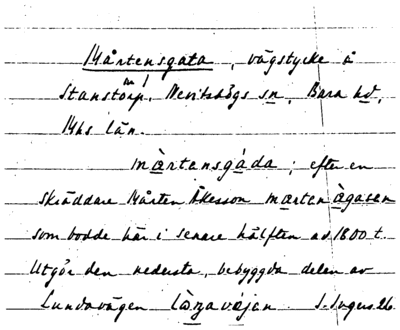 Mårtensgata, vägstycke å
Stanstorp, Nevitshögs sn, Bara hd,
Mhs län.
mårtansgáda; efter en
skräddare Mårten Åkesson mærtan ågasen
som bodde här i senare hälften av 1800 t.
Utgör den nedersta, bebyggda delen av
Lundavägen S. Ingers 26.